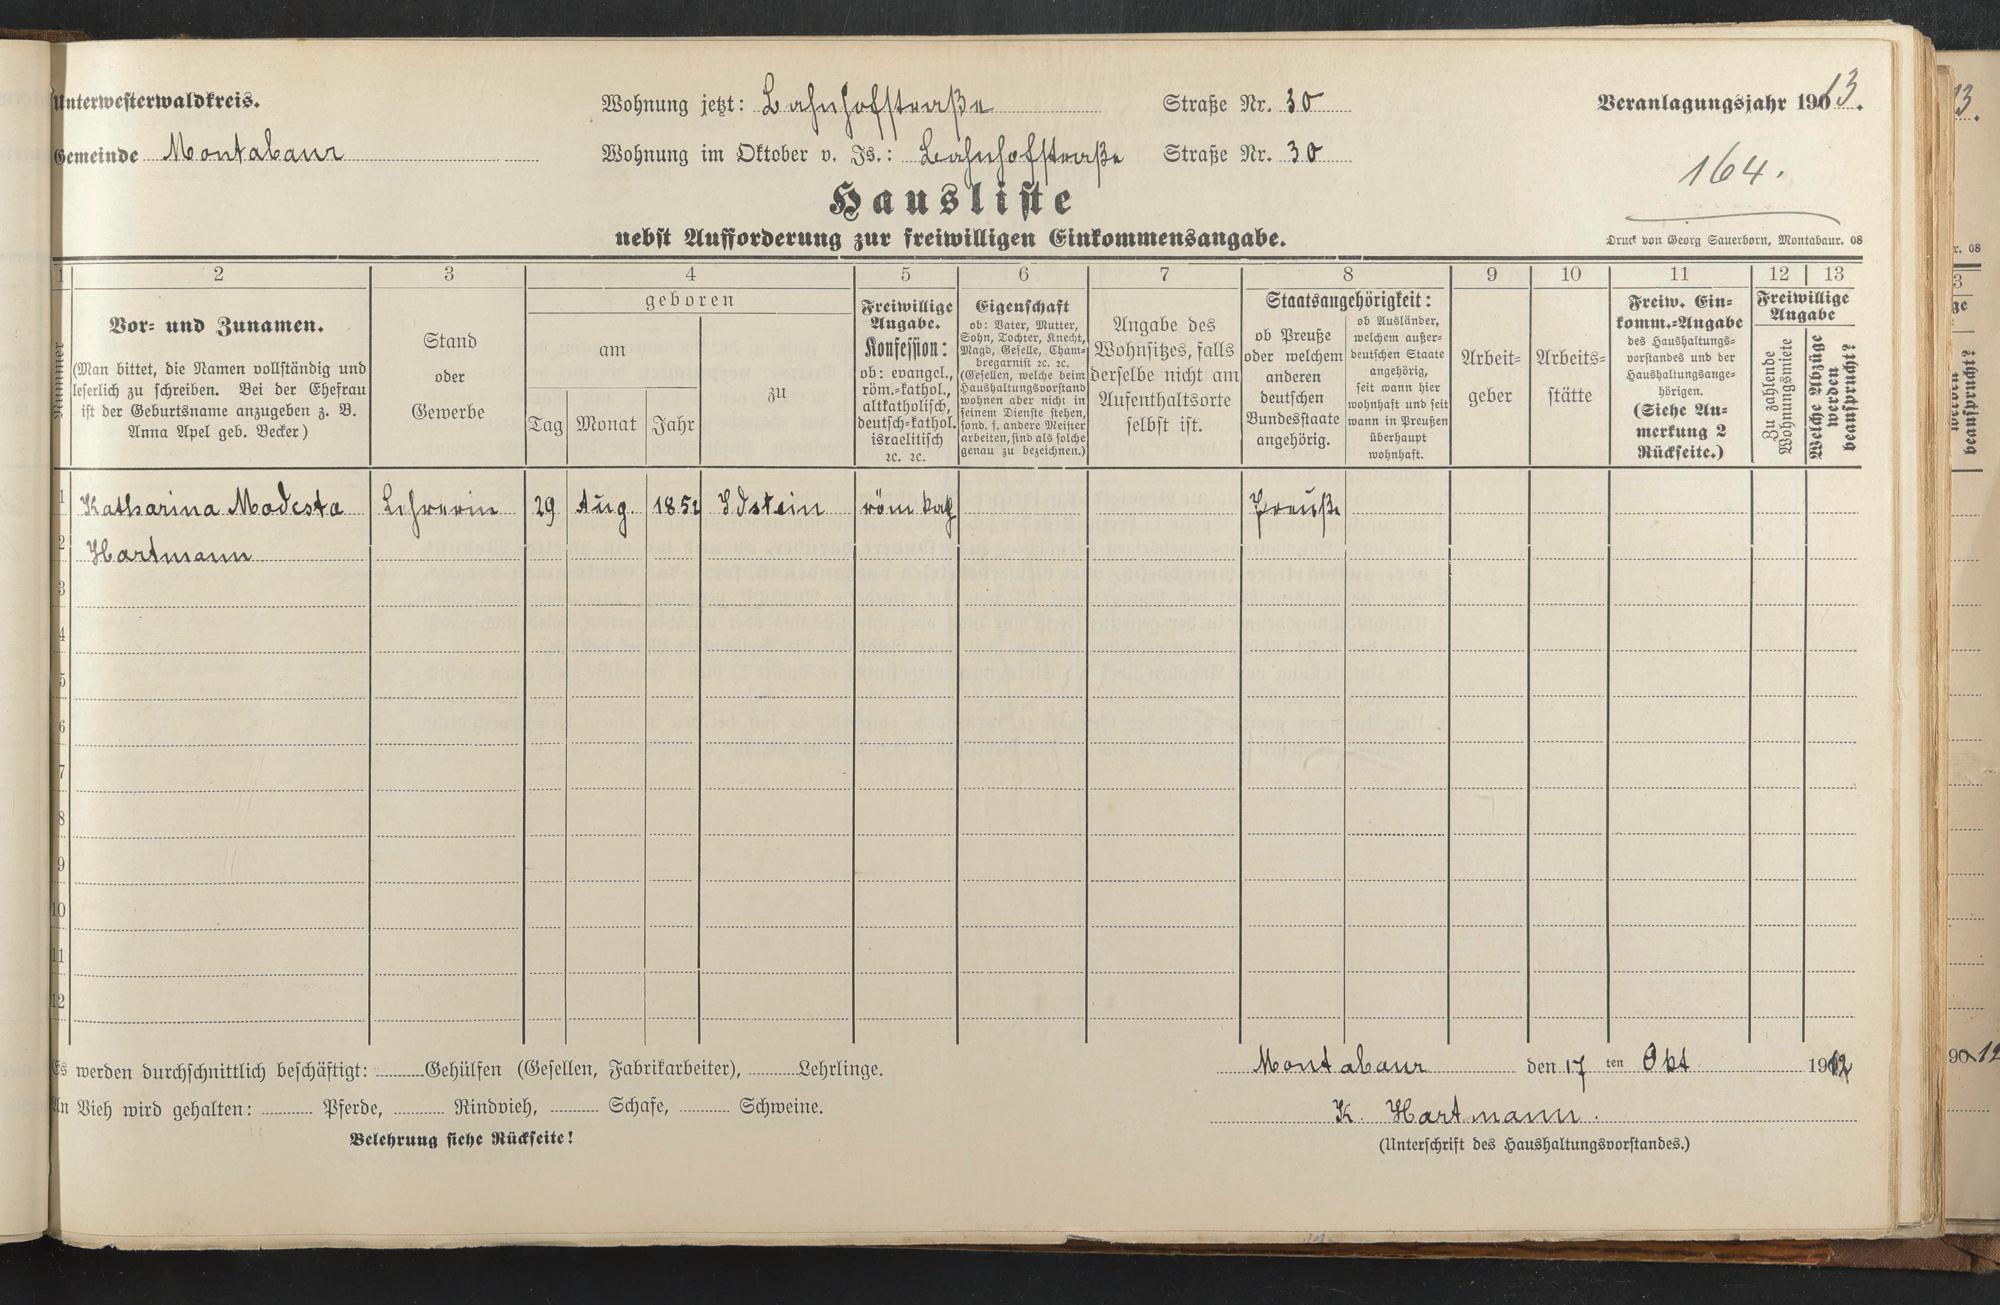 Unterwesterwaldkreis.
Wohnung jetzt: Bahnhofstraße Straße Nr. 30
Veranlagungsjahr 1913.
Gemeinde Montabaur
Wohnung im Oktober v. Js.: Bahnhofstraße Straße Nr. 30
164.
Hausliste
nebst Aufforderung zur freiwilligen Einkommensangabe.
Druck von Georg Sauerborn, Montabaur. 08
1 2 3 4 5 6 7 8 9 10 11 12 13
Nummer
Vor- und Zunamen.
(Man bittet, die Namen vollständig und
leserlich zu schreiben. Bei der Ehefrau
ist der Geburtsname anzugeben z. B.
Anna Apel geb. Becker)
Stand
oder
Gewerbe
geboren
am
Tag Monat Jahr
zu
Freiwillige
Angabe.
Konfession:
ob: evangel.,
röm.-kathol.,
altkatholisch,
deutsch-kathol.
israelitisch
ꝛc. ꝛc.
Eigenschaft
ob: Vater, Mutter,
Sohn, Tochter, Knecht,
Magd, Geselle, Cham-
bregarnist ꝛc. ꝛc.
(Gesellen, welche beim
Haushaltungsvorstand
wohnen aber nicht in
seinem Dienste stehen,
sond. f. andere Meister
arbeiten, sind als solche
genau zu bezeichnen.)
Angabe des
Wohnsitzes, falls
derselbe nicht am
Aufenthaltsorte
selbst ist.
Staatsangehörigkeit:
ob Preuße
oder welchem
anderen
deutschen
Bundesstaate
angehörig.
ob Ausländer,
welchem außer-
deutschen Staate
angehörig,
seit wann hier
wohnhaft und seit
wann in Preußen
überhaupt
wohnhaft.
Arbeit-
geber
Arbeits-
stätte
Freiw. Ein-
komm.-Angabe
des Haushaltungs-
vorstandes und der
Haushaltungsange-
hörigen.
(Siehe An-
merkung 2
Rückseite.)
Freiwillige
Angabe
Zu zahlende
Wohnungsmiete
Welche Abzüge
werden
beansprucht?
1 Katharina Modesta Lehrerin 29 Aug. 1852 Idstein röm kath Preuße
2 Hartmann
3
4
5
6
7
8
9
10
11
12
Es werden durchschnittlich beschäftigt: Gehülfen (Gesellen, Fabrikarbeiter), Lehrlinge.
Montabaur den 17 ten Okt 1912
An Vieh wird gehalten: Pferde, Rindvieh, Schafe, Schweine.
K. Hartmann.
Belehrung siehe Rückseite!
(Unterschrift des Haushaltungsvorstandes.)